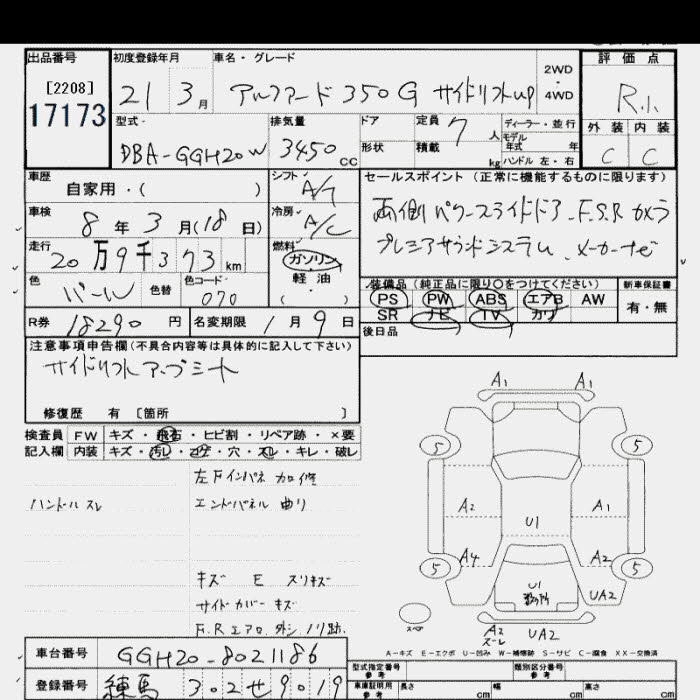 出品番号
[2208]
17173
初度登録年月
21 3月
車名・グレード
アルファード 350G サイドリフトup
2WD
・
4WD
評価点
R.1
外装 内装
C C
型式
DBA-GGH20W
排気量
3450 CC
ドア
形状
定員 7 人
積載 kg
ディーラー・並行
モデル
年式 年
ハンドル 左・右
車歴
自家用・( )
シフト
A/T
車検
8年3月(18日)
冷房
A/C
走行
20万9千373km
燃料
ガソリン
軽油
・
( )
色
パール
色替
色コード
070
R券 18290円
名変期限 1月9日
セールスポイント (正常に機能するものに限ります)
両側パワースライドドア F.S.Rカメラ
プレミアサウンドシステム メーカーナビ
装備品 (純正品に限り○をつけてください)
PS PW ABS エアB AW
SR ナビ TV カワ
新車保証書
有・無
後日品
注意事項申告欄 (不具合内容等は具体的に記入して下さい)
サイドリフトアップシート
修復歴 有 [箇所 ]
検査員
記入欄
FW キズ・飛石・ヒビ割・リペア跡・×要
内装 キズ・汚レ・コゲ・穴・スレ・キレ・破レ
ハンドルスレ
左Fインパネ 加修
エンドパネル 曲り
キズ E スリキズ
サイドカバー キズ
F.Rエアロ 外シ ノリ跡.
A1 A1
5 5
A2 A1
U1
A4 A2
5 5
U1
数ヶ所
UA2
スペア
A2
スーレ
UA2
A-キズ E-エクボ U-凹み W-補修跡 S-サビ C-腐食 XX-交換済
車台番号 GGH20-8021186
登録番号 練馬 302せ9019
型式指定番号
参考
類別区分番号
参考
車庫証明用
参考
長さ cm
幅 cm
高さ cm